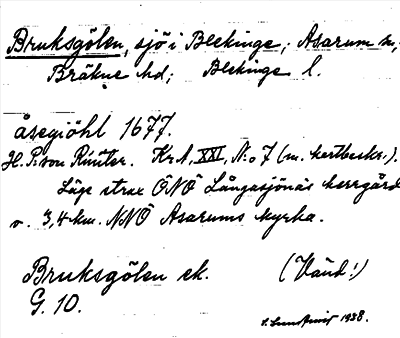 Bruksgölen, sjö i Blekinge; Asarum sn,
Bräkne hd; Blekinge l.
åsegiöhl 1677.
H. P. von Rimter. Kr A, XXI, N:o 7 (m. kartbeskr.).
Läge strax ÖNÖ Långasjönäs herrgård
v. 3,4 km. NNÖ Asarums kyrka.
Bruksgölen ek. (Vänd!)
G. 10.
1938.